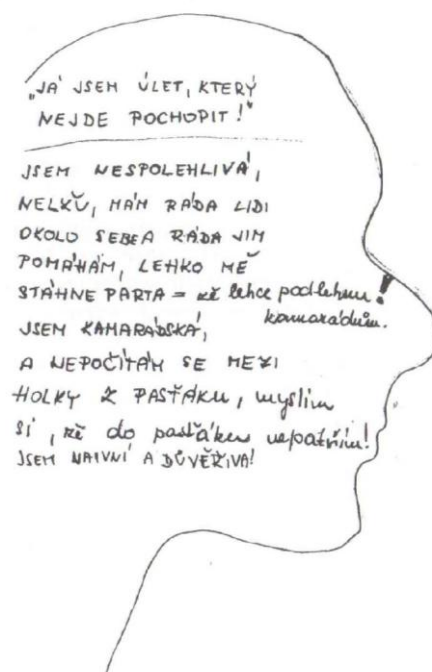 „JÁ JSEM ÚLET, KTERÝ
NEJDE POCHOPIT!“
JSEM NESPOLEHLIVÁ,
NELŽU, MÁM RÁDA LIDI
OKOLO SEBE A RÁDA JIM
POMÁHÁM, LEHKO MĚ
STÁHNE PARTA = že lehce podlehnu
kamarádům.
JSEM KAMARÁDSKÁ,
A NEPOČÍTÁM SE MEZI
HOLKY Z PASŤÁKU, myslím
SI, že do pasťáku nepatřím!
JSEM NAIVNÍ A DŮVĚŘIVÁ!